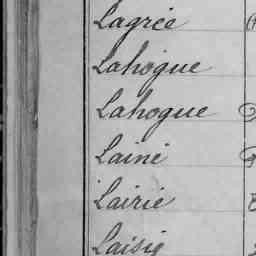 Lagrée
Lahogue
Lahogue
Lainé
Lairie
Laisie